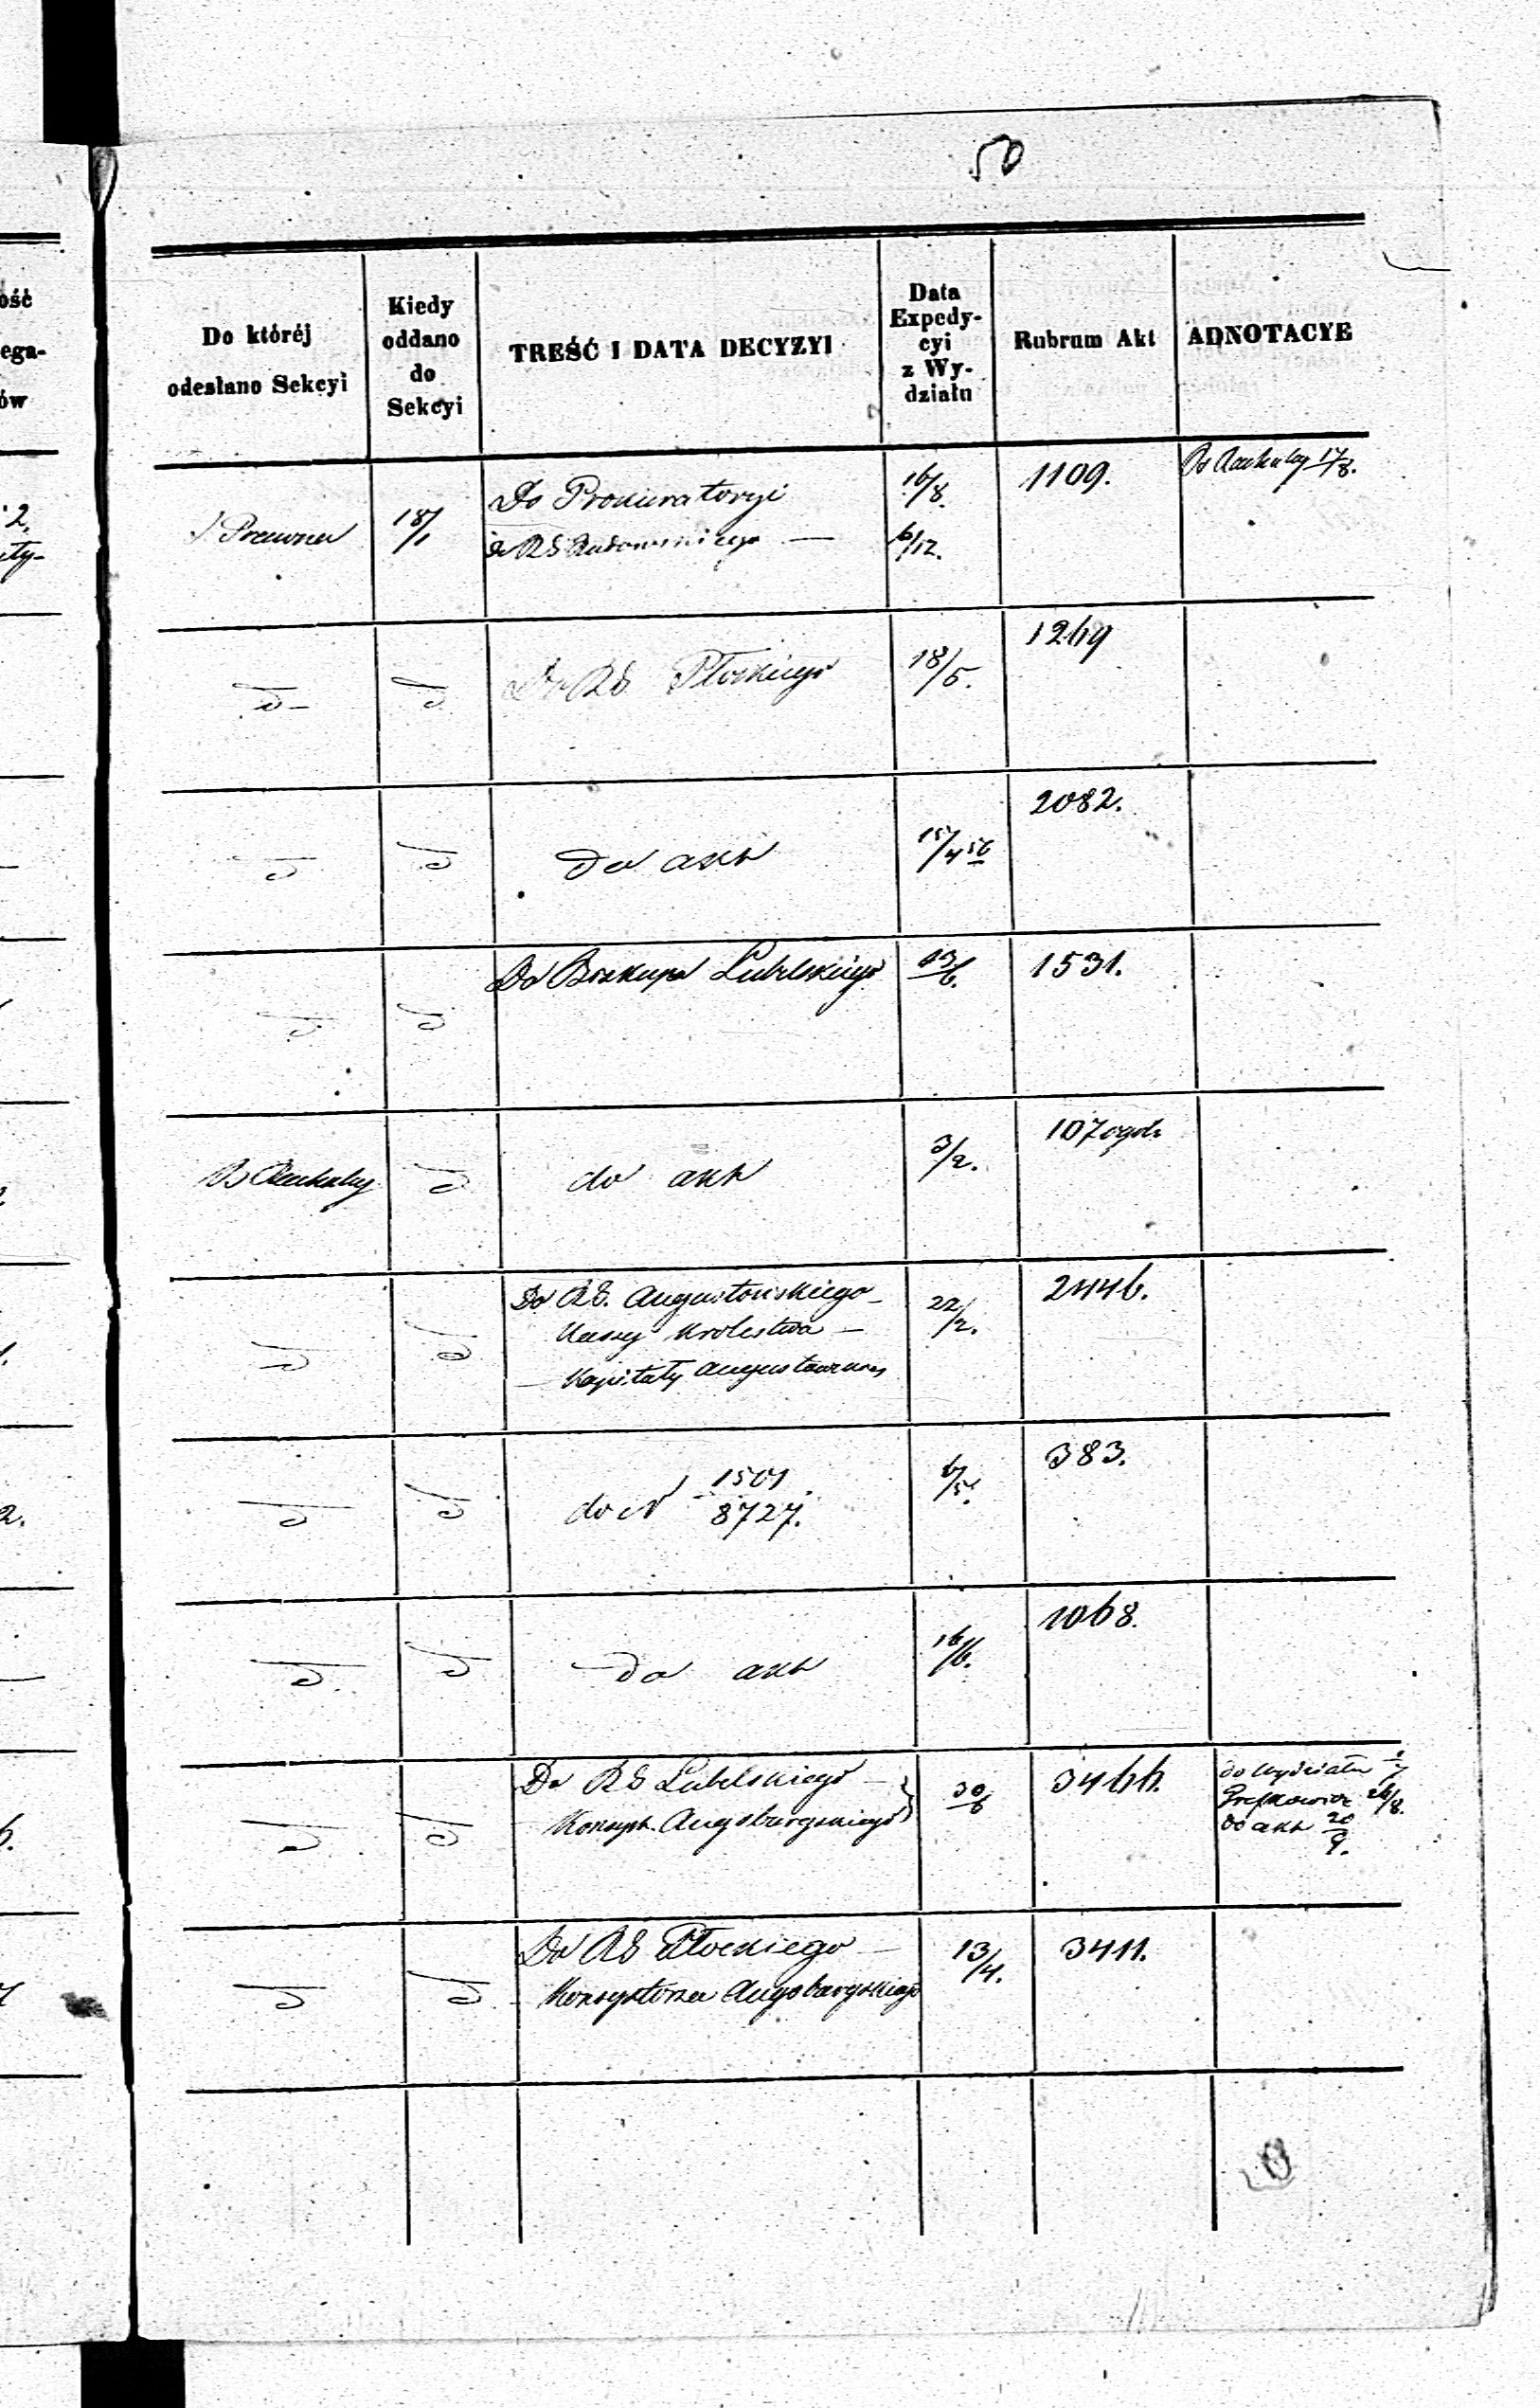 50
Do któréj
odesłano Sekcyi
Kiedy
oddano
do
Sekcyi
TREŚĆ I DATA DECYZYI
Data
Expedy-
cyi
z Wy-
działu
Rubrum Akt
ADNOTACYE
Prawna
18/1
Do Prokuratoryi
R G Radomskiego —
16/8.
6/12.
1109.
17/8.
d
d
Do R G Płockiego
18/5.
1269
d
d
do akt
15/4 56
2082.
d
d
Do Biskupa Lubelskiego
13/6.
1531.
d
do akt
3/2.
107 ogól.
d
d
Do R G. Augustowskiego —
Kassy Królestwa —
— Kapituły
22/2.
2446.
d
d
do N 1501/8727.
6/5.
383.
d
d
do akt
16/6.
1068.
d
d
Do R G Lubelskiego —
Konsyst. Augsburgskiego
30/6
3466.
do Wydziału
26/8.
do akt 20/9.
d
d
Do R G Płockiego —
Konsystorza Augsburgskiego
13/4.
3411.